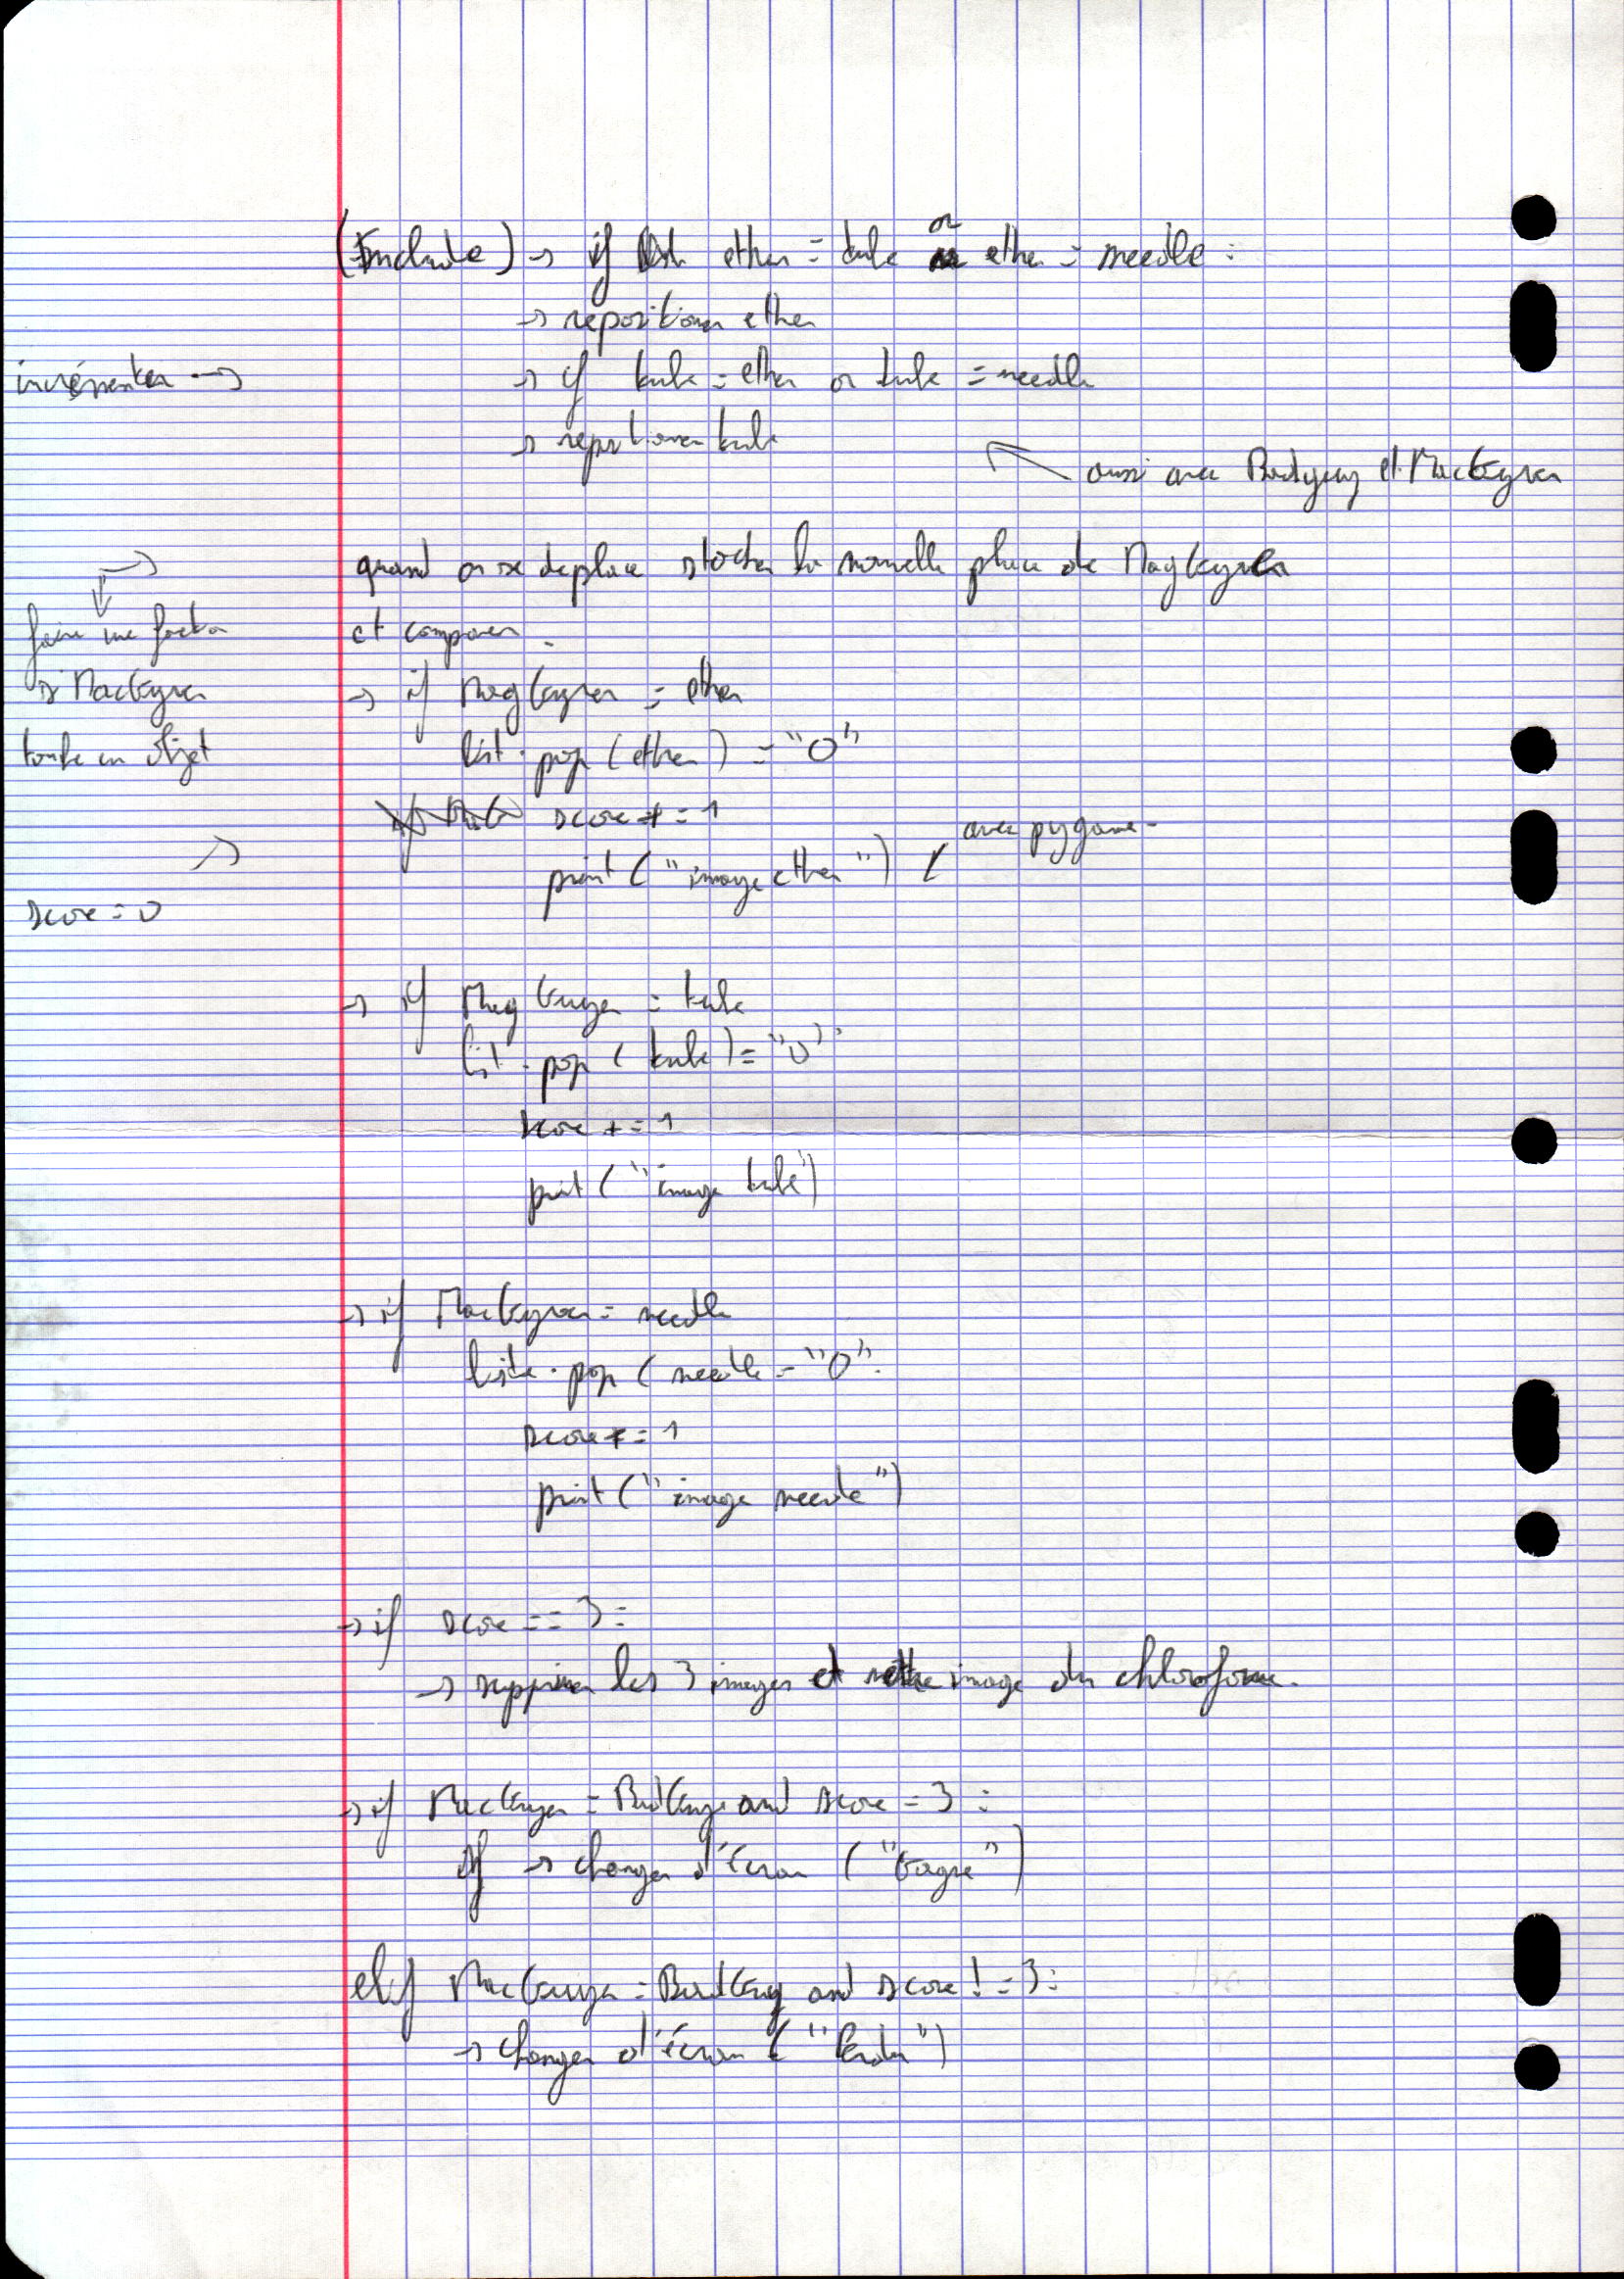 (Include) → if ether = tube or ether = needle :
→ repositionner ether
incrémenter →
→ if tube = ether or tube = needle
→ repositionner tube
aussi avec Bodyguy et MacGyver
quand on se deplace stocker la nouvelle place de MagGyver
et comparer.
faire une fonction
si MacGyver
touche un objet
→ if MagGyver = ether
list.pop(ether) = "0"
score += 1
print("image ether") ( avec pygame
score = 0
→ if Mag Gyver = tube
list.pop(tube) = "0"
score += 1
print("image tube")
→ if MacGyver = needle
liste.pop(needle = "0"
score += 1
print("image needle")
→ if score == 3 :
→ supprimer les 3 images et mettre image du chloroforme.
→ if MacGyver = BadGuy and score = 3 :
if → changer d'écran ("Gagné")
elif MacGyver = BadGuy and score != 3 :
→ changer d'écran ("Perdu")